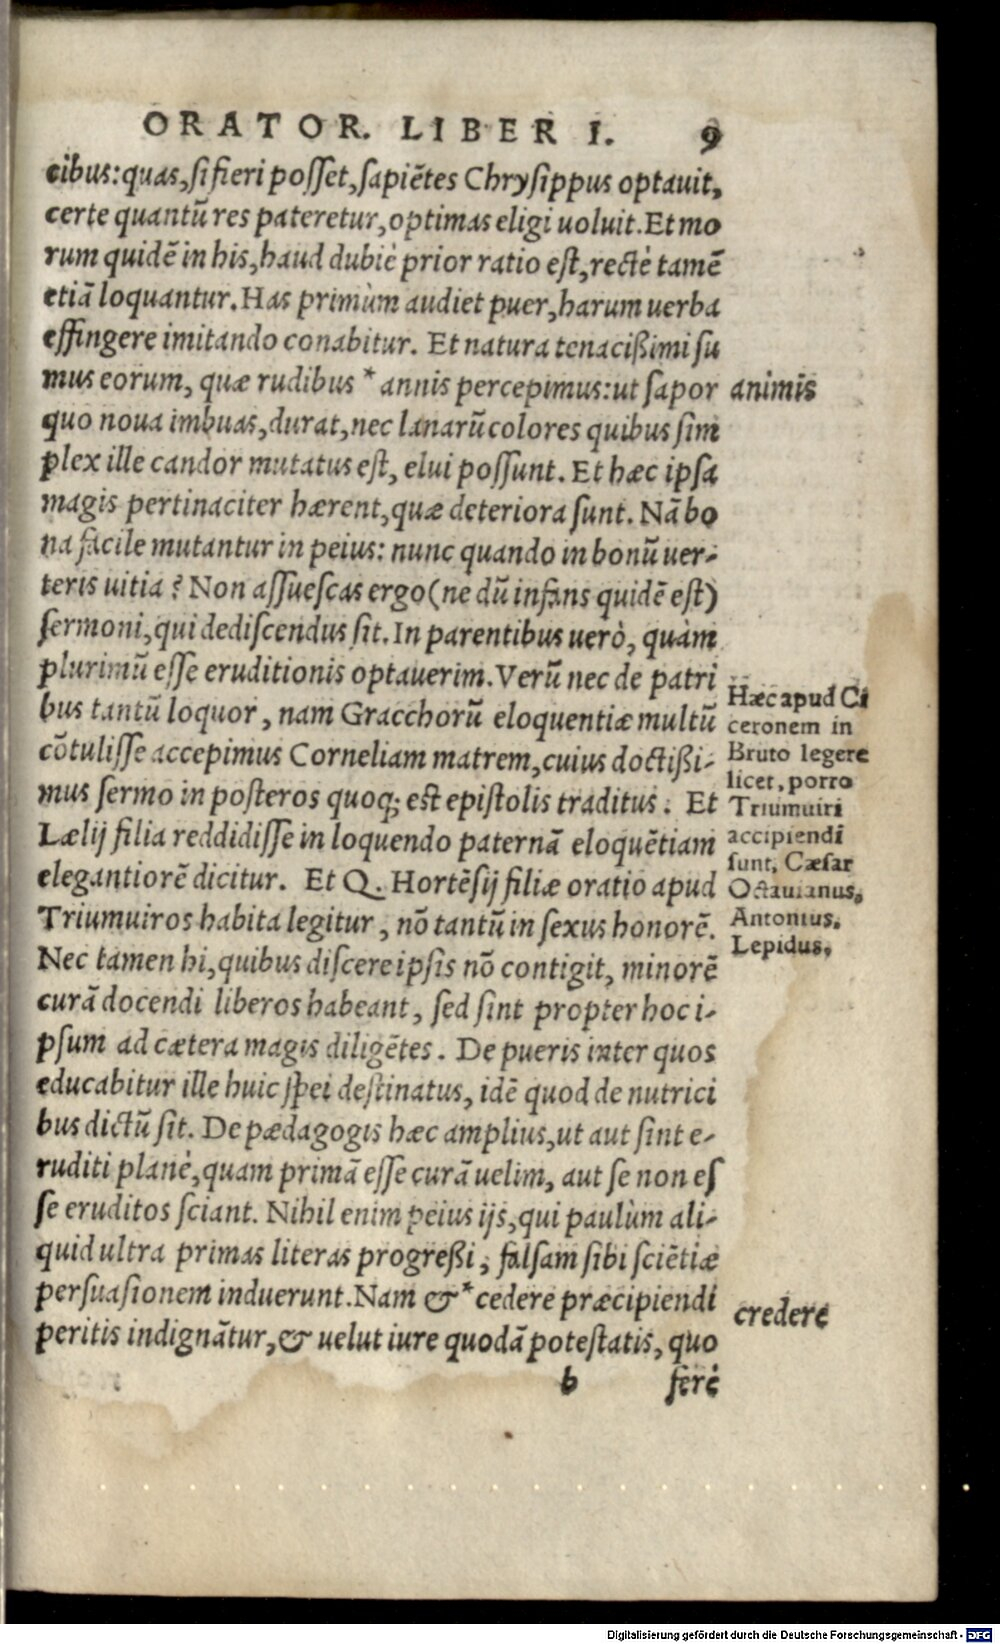 ORATOR. LIBER I. 9
cibus: quas, si fieri posset, sapiētes Chrysippus optauit,
certe quantū res pateretur, optimas eligi uoluit. Et mo
rum quidē in his, haud dubiè prior ratio est, rectè tamē
etiā loquantur. Has primùm audiet puer, harum uerba
effingere imitando conabitur. Et natura tenacißimi su
mus eorum, quæ rudibus * annis percepimus: ut sapor
animis
quo noua imbuas, durat, nec lanarū colores quibus sim
plex ille candor mutatus est, elui possunt. Et hæc ipsa
magis pertinaciter hærent, quæ deteriora sunt. Nā bo
na facile mutantur in peius: nunc quando in bonū uer-
teris uitia? Non assuescas ergo (ne dū infans quidē est)
sermoni, qui dediscendus sit. In parentibus uerò, quàm
plurimū esse eruditionis optauerim. Verū nec de patri
bus tantū loquor, nam Gracchorū eloquentiæ multū
cōtulisse accepimus Corneliam matrem, cuius doctißi-
mus sermo in posteros quoq; est epistolis traditus. Et
Lælij filia reddidisse in loquendo paternā eloquētiam
elegantiorē dicitur. Et Q. Hortēsij filiæ oratio apud
Triumuiros habita legitur, nō tantū in sexus honorē.
Hæc apud Ci
ceronem in
Bruto legere
licet, porro
Triumuiri
accipiendi
sunt, Cæsar
Octauianus,
Antonius.
Lepidus.
Nec tamen hi, quibus discere ipsis nō contigit, minorē
curā docendi liberos habeant, sed sint propter hoc i-
psum ad cætera magis diligētes. De pueris inter quos
educabitur ille huic spei destinatus, idē quod de nutrici
bus dictū sit. De pædagogis hæc amplius, ut aut sint e-
ruditi planè, quam primā esse curā uelim, aut se non es
se eruditos sciant. Nihil enim peius ijs, qui paulùm ali-
quid ultra primas literas progreßi, falsam sibi sciētiæ
persuasionem induerunt. Nam & * cedere præcipiendi
credere
peritis indignātur, & uelut iure quodā potestatis, quo
b ferè
Digitalisierung gefördert durch die Deutsche Forschungsgemeinschaft - DFG